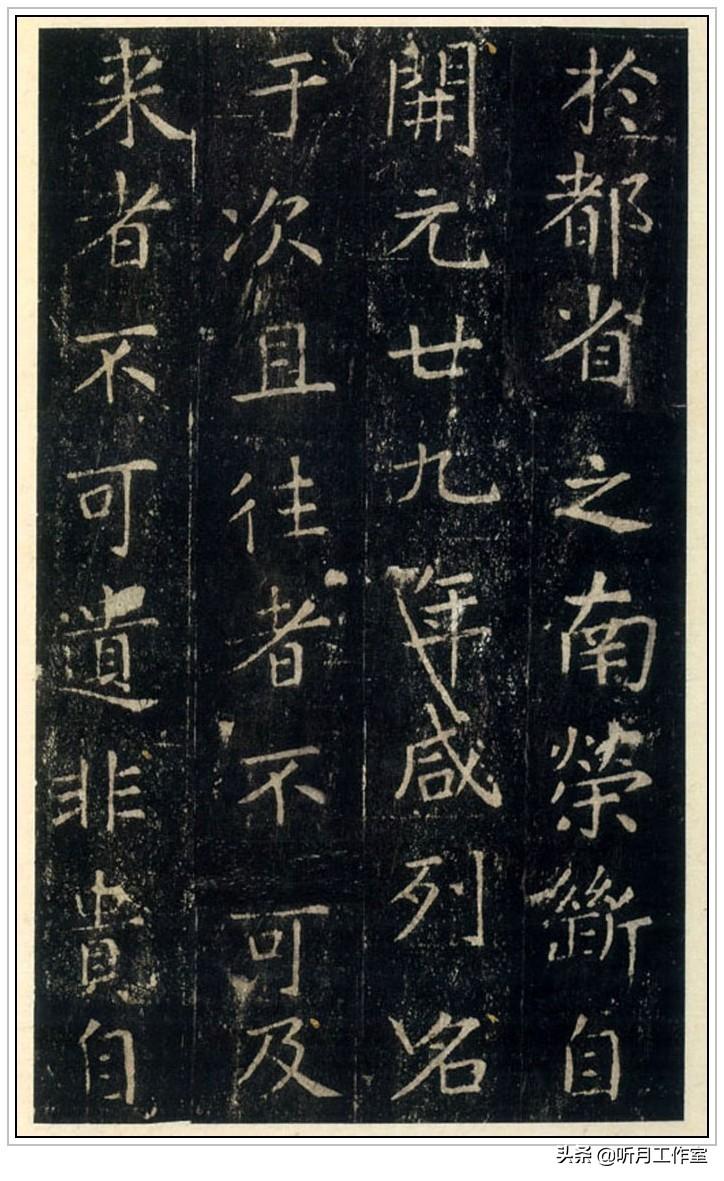 扵都省之南榮斷自
開元廿九年咸列名
于次且往者不可及
来者不可遺非貴自
头条 @听月工作室